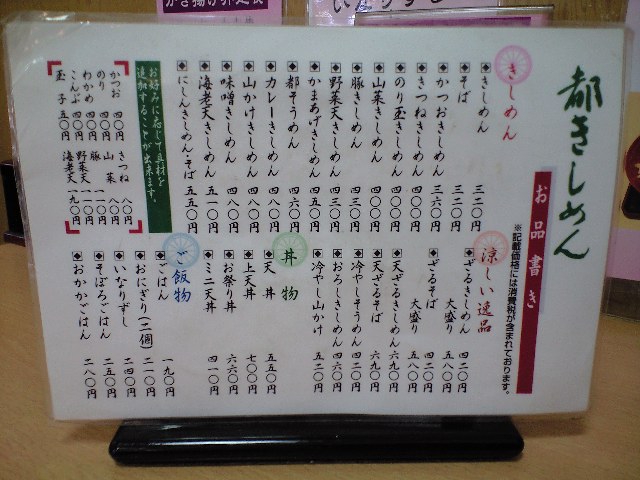 都きしめん
お品書き
※記載価格には消費税が含まれております。
きしめん
きしめん 三二〇円
そば 三二〇円
かつおきしめん 三六〇円
きつねきしめん 四〇〇円
のり玉きしめん 四〇〇円
山菜きしめん 四〇〇円
豚きしめん 四三〇円
野菜天きしめん 四三〇円
かまあげきしめん 四五〇円
都そうめん 四六〇円
カレーきしめん 四八〇円
山かけきしめん 四八〇円
味噌きしめん 四八〇円
海老天きしめん 五一〇円
にしんきしめん・そば 五五〇円
お好みに応じて具材を
追加することが出来ます。
かつお 四〇円
のり 四〇円
わかめ 四〇円
こんぶ 四〇円
玉子 五〇円
きつね 八〇円
山菜 八〇円
豚 一一〇円
野菜天 一一〇円
海老天 一九〇円
涼しい逸品
ざるきしめん 四二〇円
大盛り 五八〇円
ざるそば 四二〇円
大盛り 五八〇円
天ざるきしめん 六九〇円
天ざるそば 六九〇円
冷やしそうめん 四二〇円
おろしきしめん 四六〇円
冷やし山かけ 五二〇円
丼物
天丼 五五〇円
上天丼 七〇〇円
お祭り丼 六六〇円
ミニ天丼 四一〇円
ご飯物
ごはん 一九〇円
おにぎり(二個) 二一〇円
いなりずし 二四〇円
そぼろごはん 二五〇円
おかかごはん 二八〇円